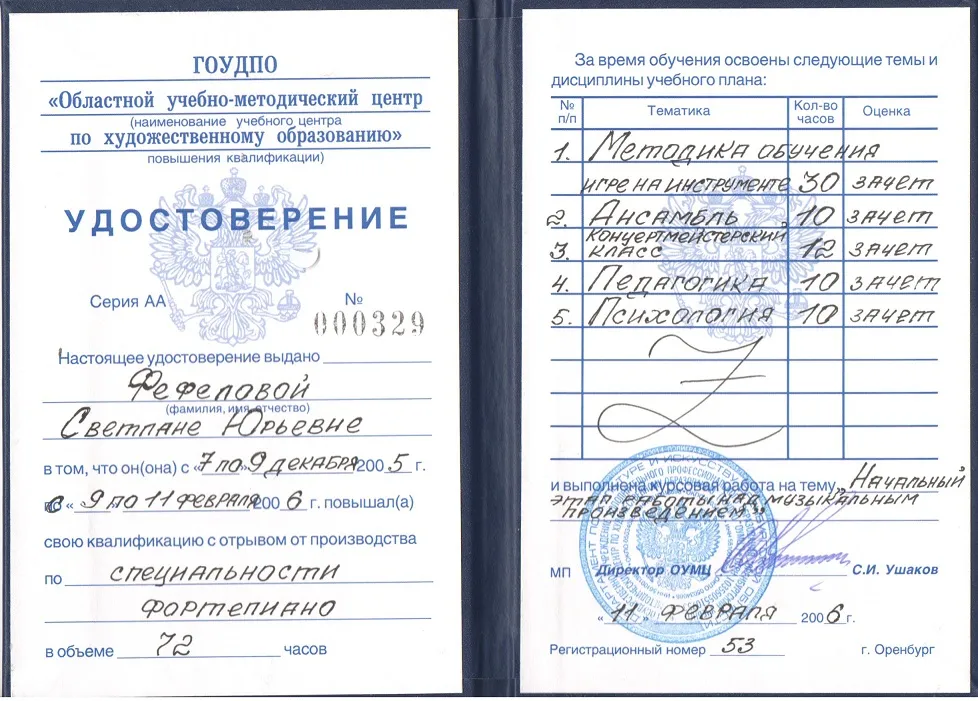 ГОУДПО
«Областной учебно-методический центр
(наименование учебного центра
по художественному образованию»
повышения квалификации)
УДОСТОВЕРЕНИЕ
Серия АА №
000329
Настоящее удостоверение выдано
Фефеловой
(фамилия, имя, отчество)
Светлане Юрьевне
в том, что он(она) с «7 по 9 декабря 2005 г.
с « 9 по 11 февраля 2006 г. повышал(а)
свою квалификацию с отрывом от производства
по специальности
фортепиано
в объеме 72 часов
За время обучения освоены следующие темы и
дисциплины учебного плана:
№ п/п Тематика Кол-во часов Оценка
1. Методика обучения
игре на инструменте 30 зачет
2. Ансамбль 10 зачет
3. Концертмейстерский класс 12 зачет
4. Педагогика 10 зачет
5. Психология 10 зачет
и выполнена курсовая работа на тему „Начальный
этап работы над музыкальным
произведением"
МП Директор ОУМЦ С.И. Ушаков
«11» февраля 2006г.
Регистрационный номер 53 г. Оренбург